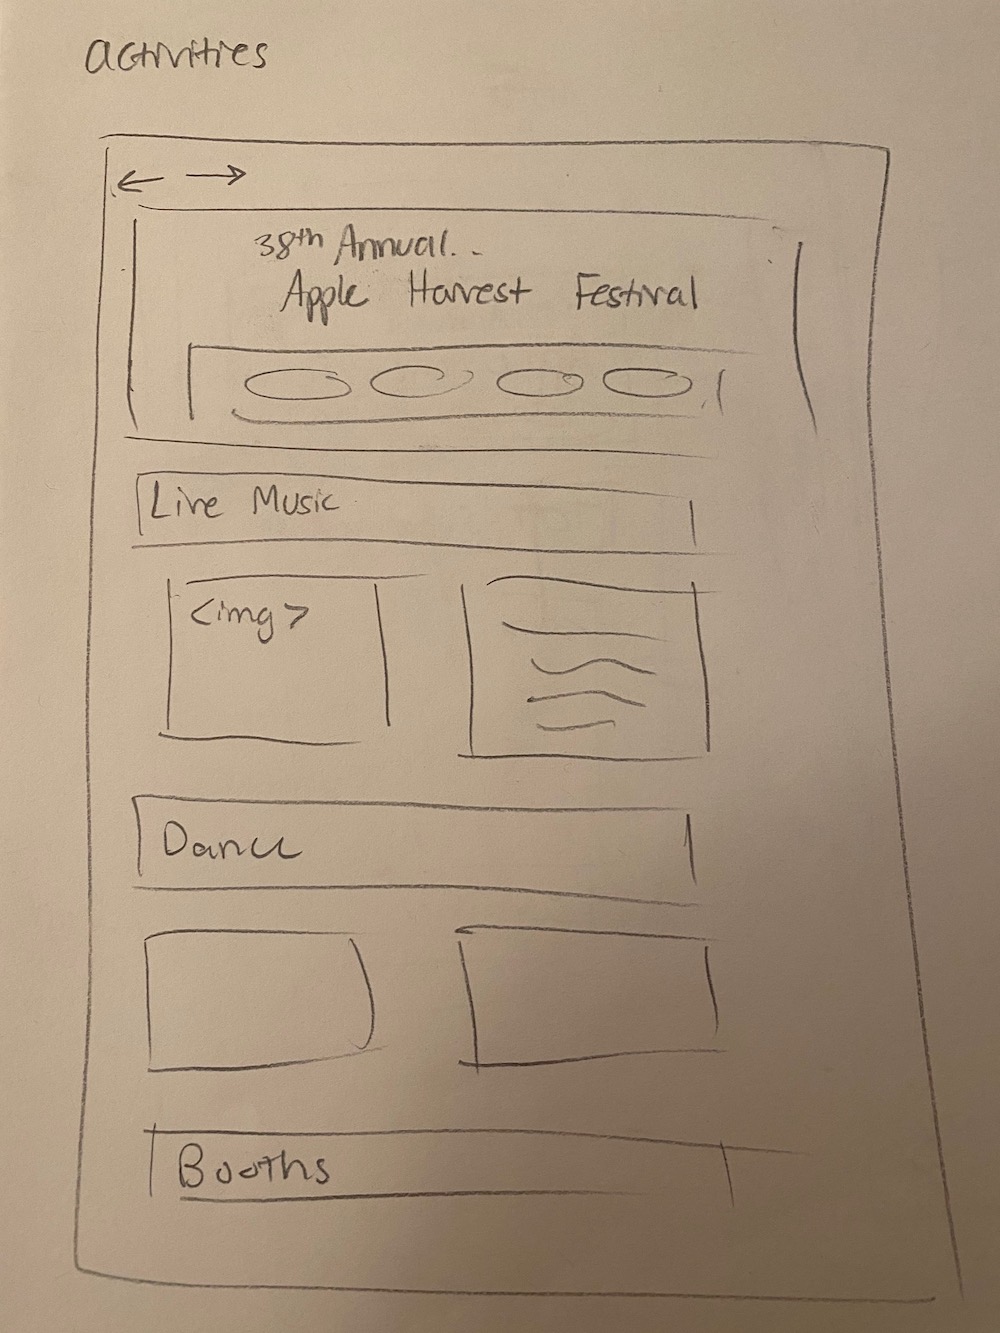 activities
38th Annual..
Apple Harvest Festival
Live Music
<img>
Dance
Booths